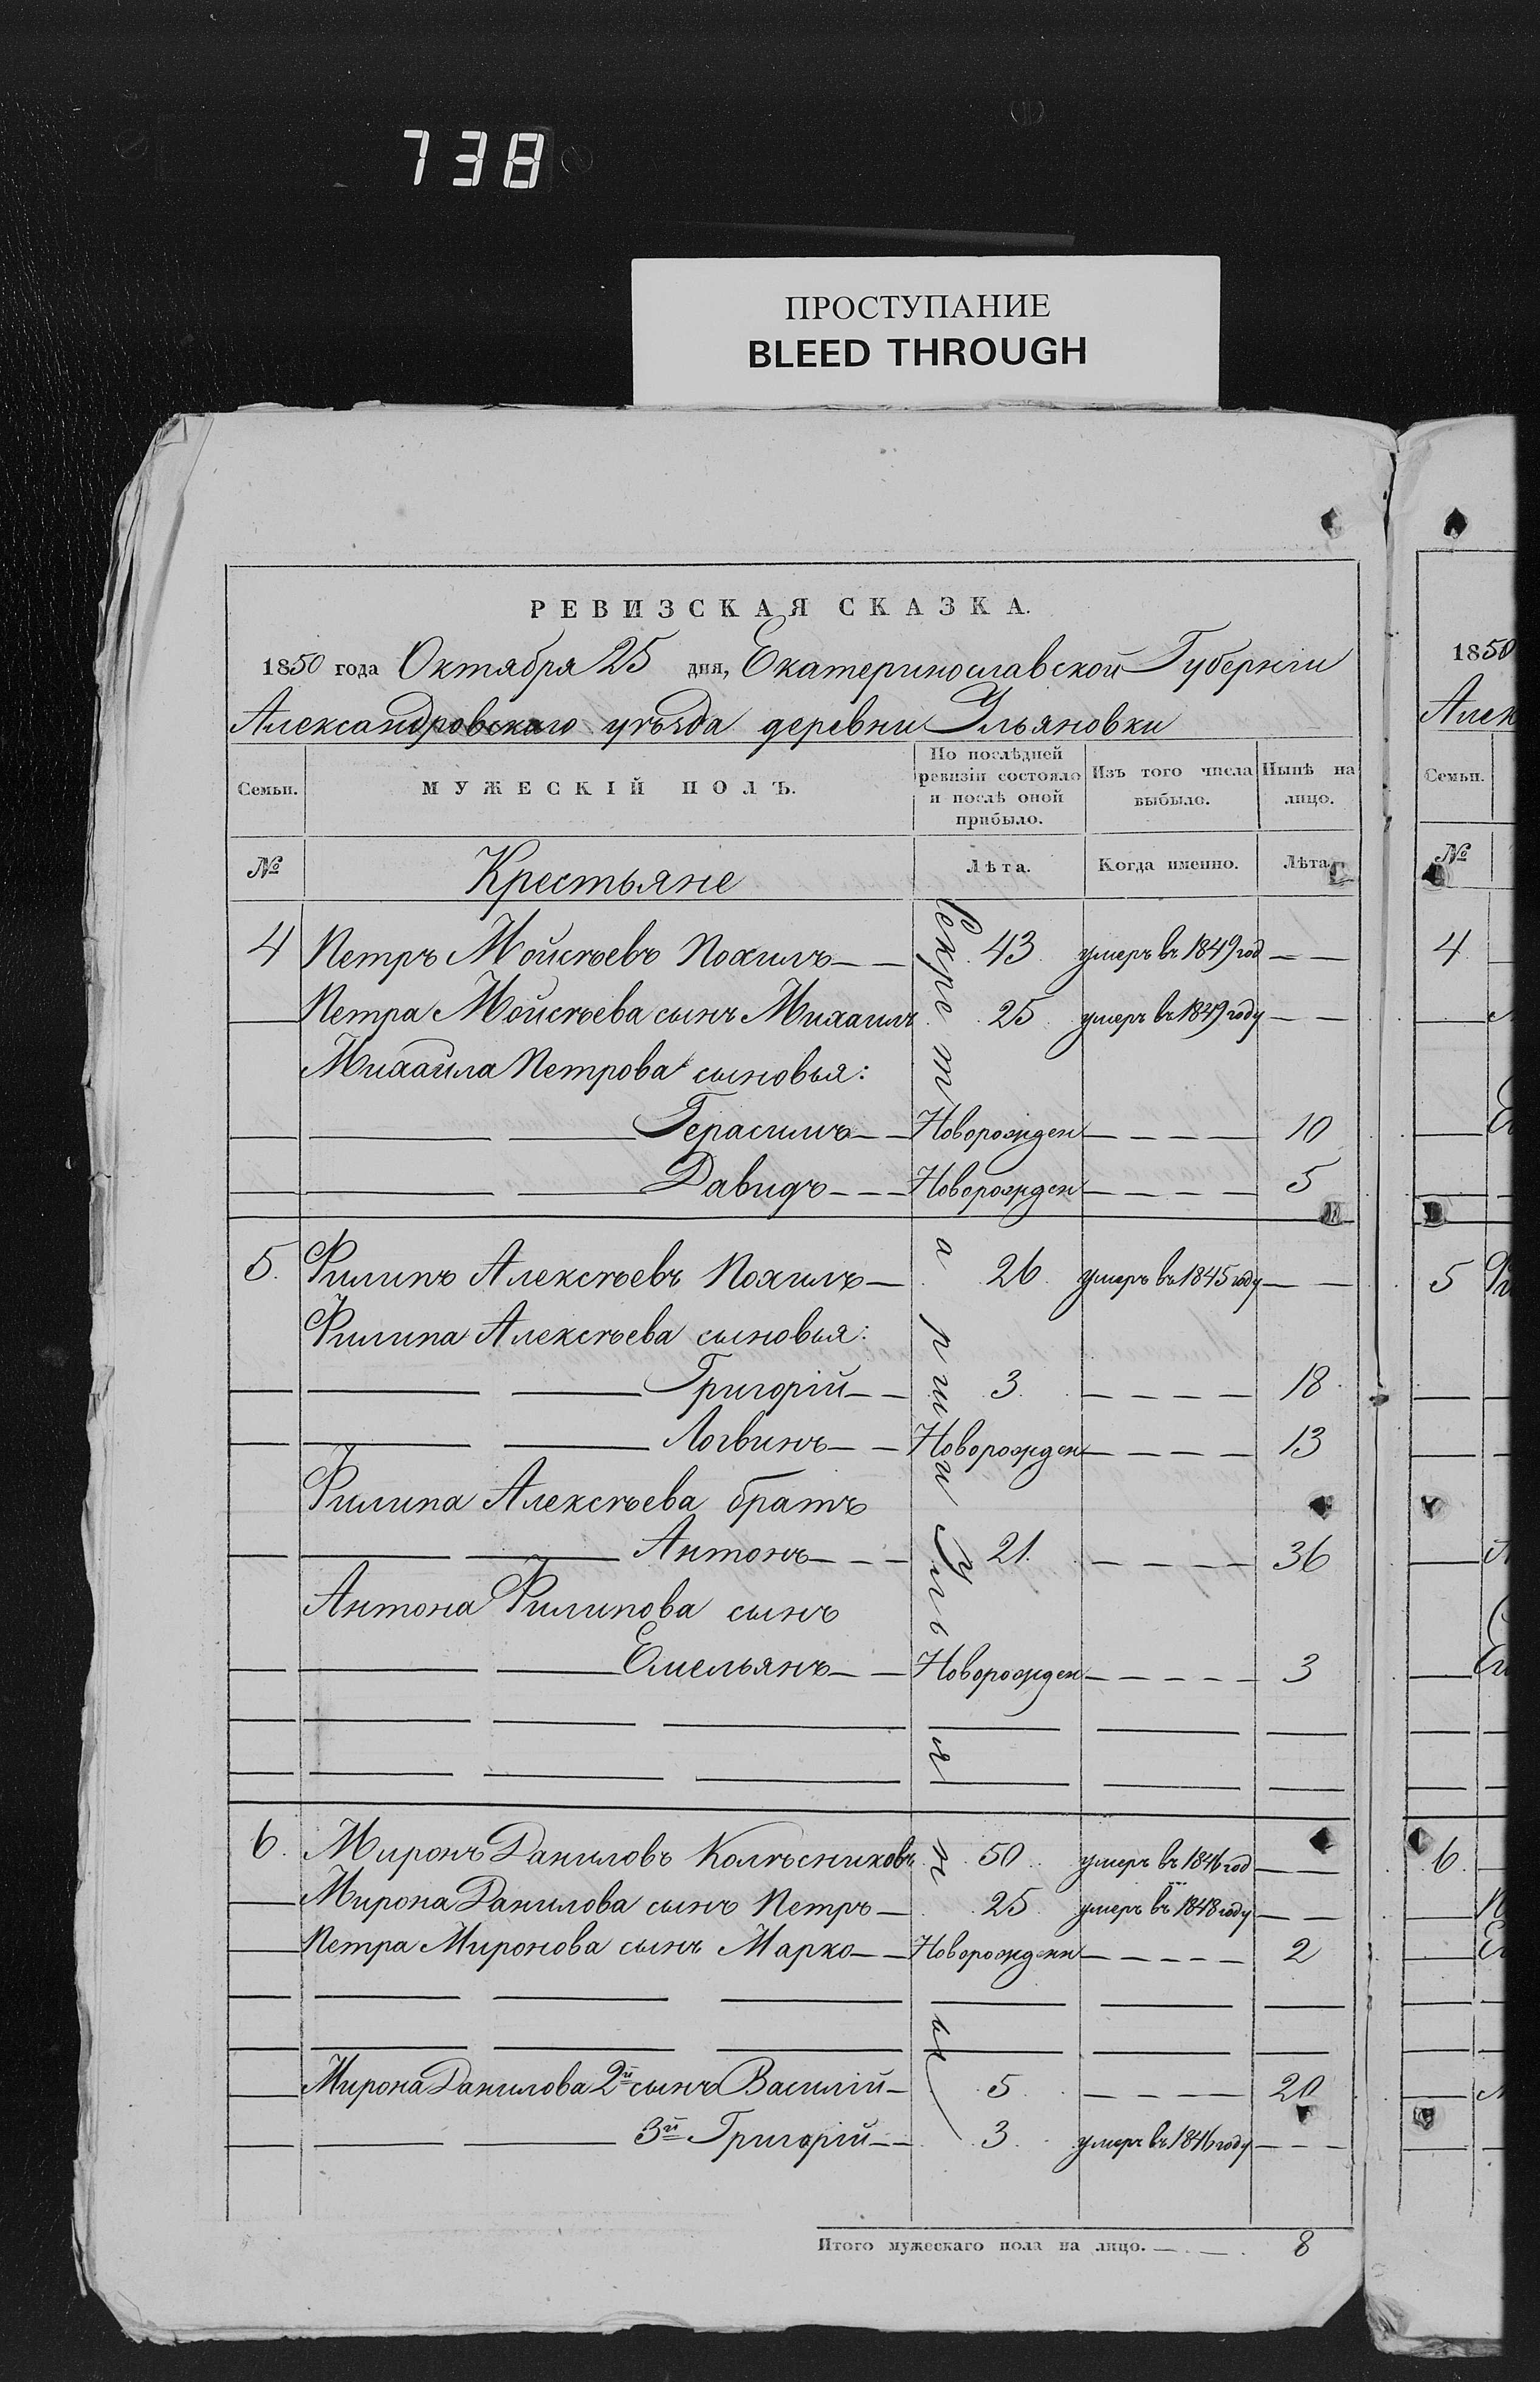 738
ПРОСТУПАНИЕ
BLEED THROUGH
РЕВИЗСКАЯ СКАЗКА.
1850 года Октября 25 дня, Екатеринославской Губернiи
Александровскаго уѣзда деревни Ульяновки
Семьи. МУЖЕСКІЙ ПОЛЪ. По послѣдней ревизіи состояло и послѣ оной прибыло. Изъ того числа выбыло. Нынѣ на лицо.
№ Крестьяне Лѣта. Когда именно. Лѣта.
4 Петръ Мойсѣевъ Похилъ 43 умеръ въ 1849 год
Петра Мойсѣева сынъ Михаилъ 25 умеръ въ 1849 году
Михайла Петрова сыновья:
Герасимъ Новорожден 10
Давидъ Новорожден 5
5. Филипъ Алексѣевъ Похилъ 26 умеръ въ 1845 году
Филипа Алексѣева сыновья:
Григорій 3 18
Логвинъ Новорожден 13
Филипа Алексѣева братъ
Антонъ 21. 36
Антона Филипова сынъ
Емельянъ Новорожден 3
6. Миронъ Даниловъ Колѣсниковъ 50 умеръ въ 1846 год
Мирона Данилова сынъ Петръ 25 умеръ въ 1848 году
Петра Миронова сынъ Марко Новорожденн 2
Мирона Данилова 2й сынъ Василій 5 20
3й Григорій 3 умеръ въ 1846 году
Итого мужескаго пола на лицо. 8
1850
Алек
Семьи.
№
4
5
6.